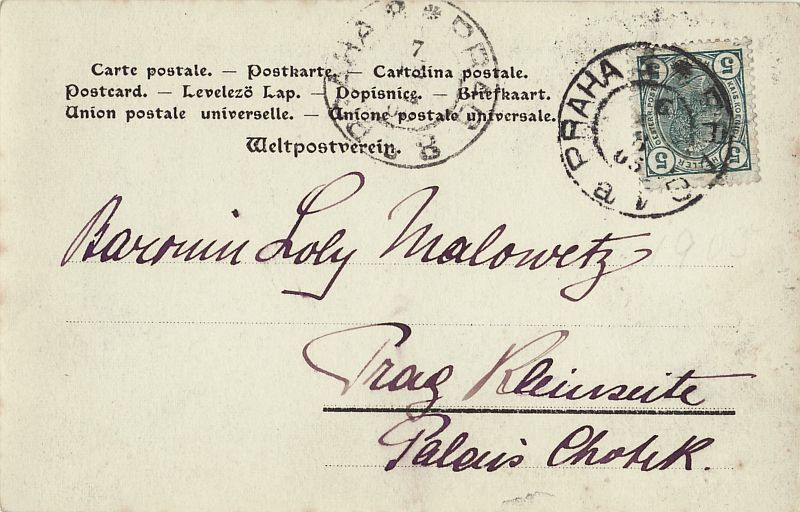 Carte postale. — Postkarte. — Cartolina postale.
Postcard. — Levelező Lap. — Dopisnice. — Briefkaart.
Union postale universelle. — Unione postale universale.
Weltpostverein.
PRAHA PRAG
7
PRAHA 1 PRAG
5 5
5 5
HELLER
Baronin Loly Malowetz
Prag Kleinseite
Palais Chotek.